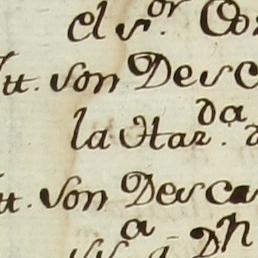 el s.or Co
Itt. son Desc
la Har.da d
tt. son Desca